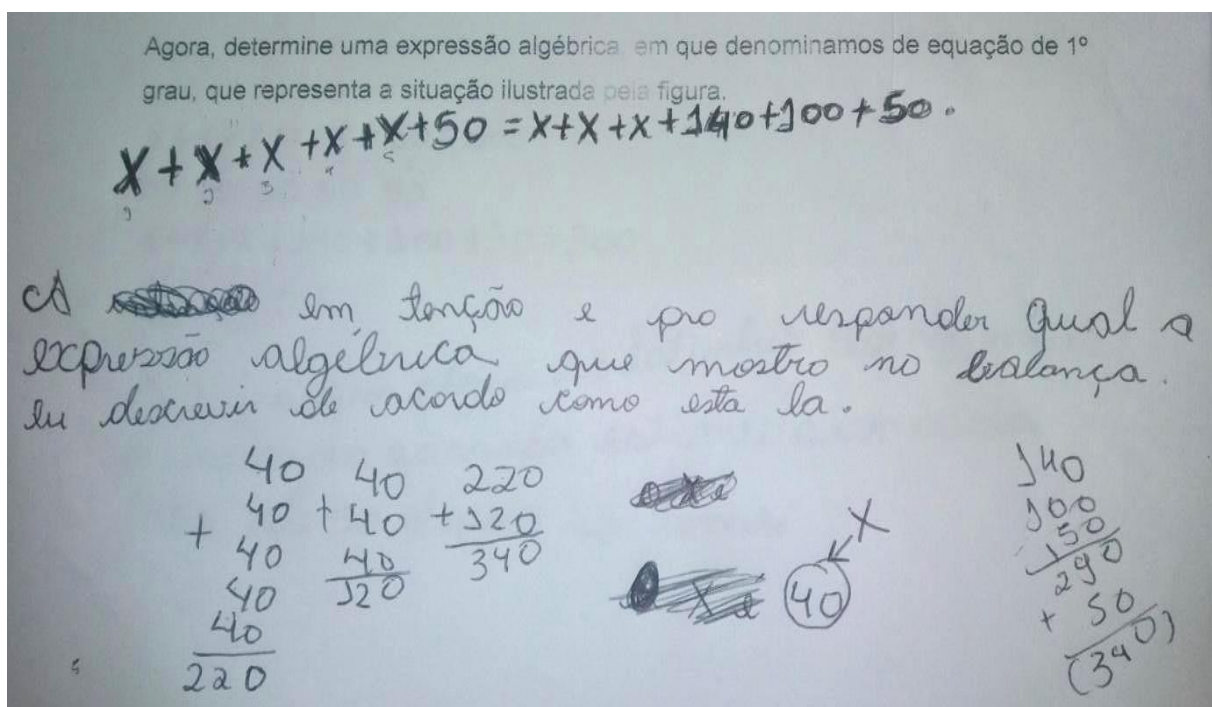 Agora, determine uma expressão algébrica em que denominamos de equação de 1º
grau, que representa a situação ilustrada pela figura.
X + X + X + X + X + 50 = X + X + X + 140 + 100 + 50.
1 2 3 4 5
A em tenção e pro responder Qual a
expressão algébrica que mostro no balança.
eu descrevir de acordo como esta la.
40
+ 40
40
40
40
220
40
+ 40
40
120
220
+ 120
340
X
40
140
100
50
290
+ 50
(340)